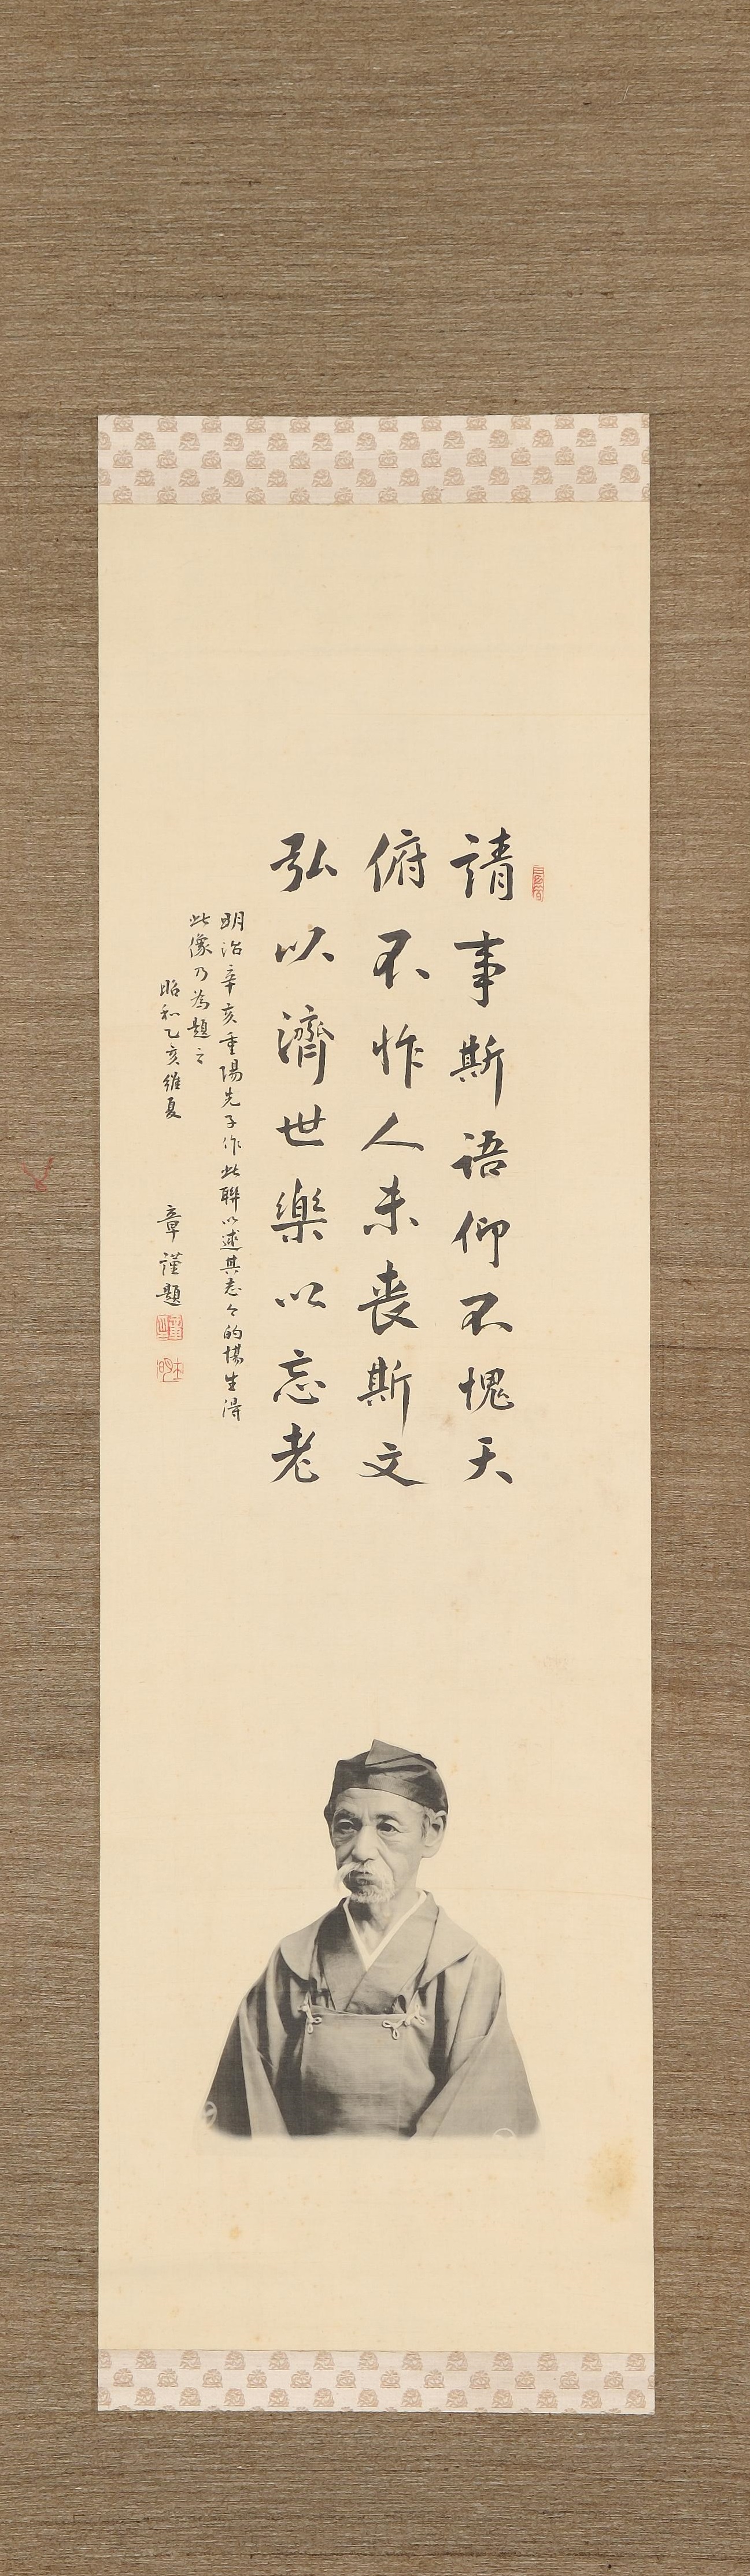 請事斯語仰不愧天
俯不怍人未喪斯文
弘以濟世樂以忘老
明治辛亥重陽先子作此聯以述其志々的場生得
此像乃為題之
昭和乙亥維夏
章謹題